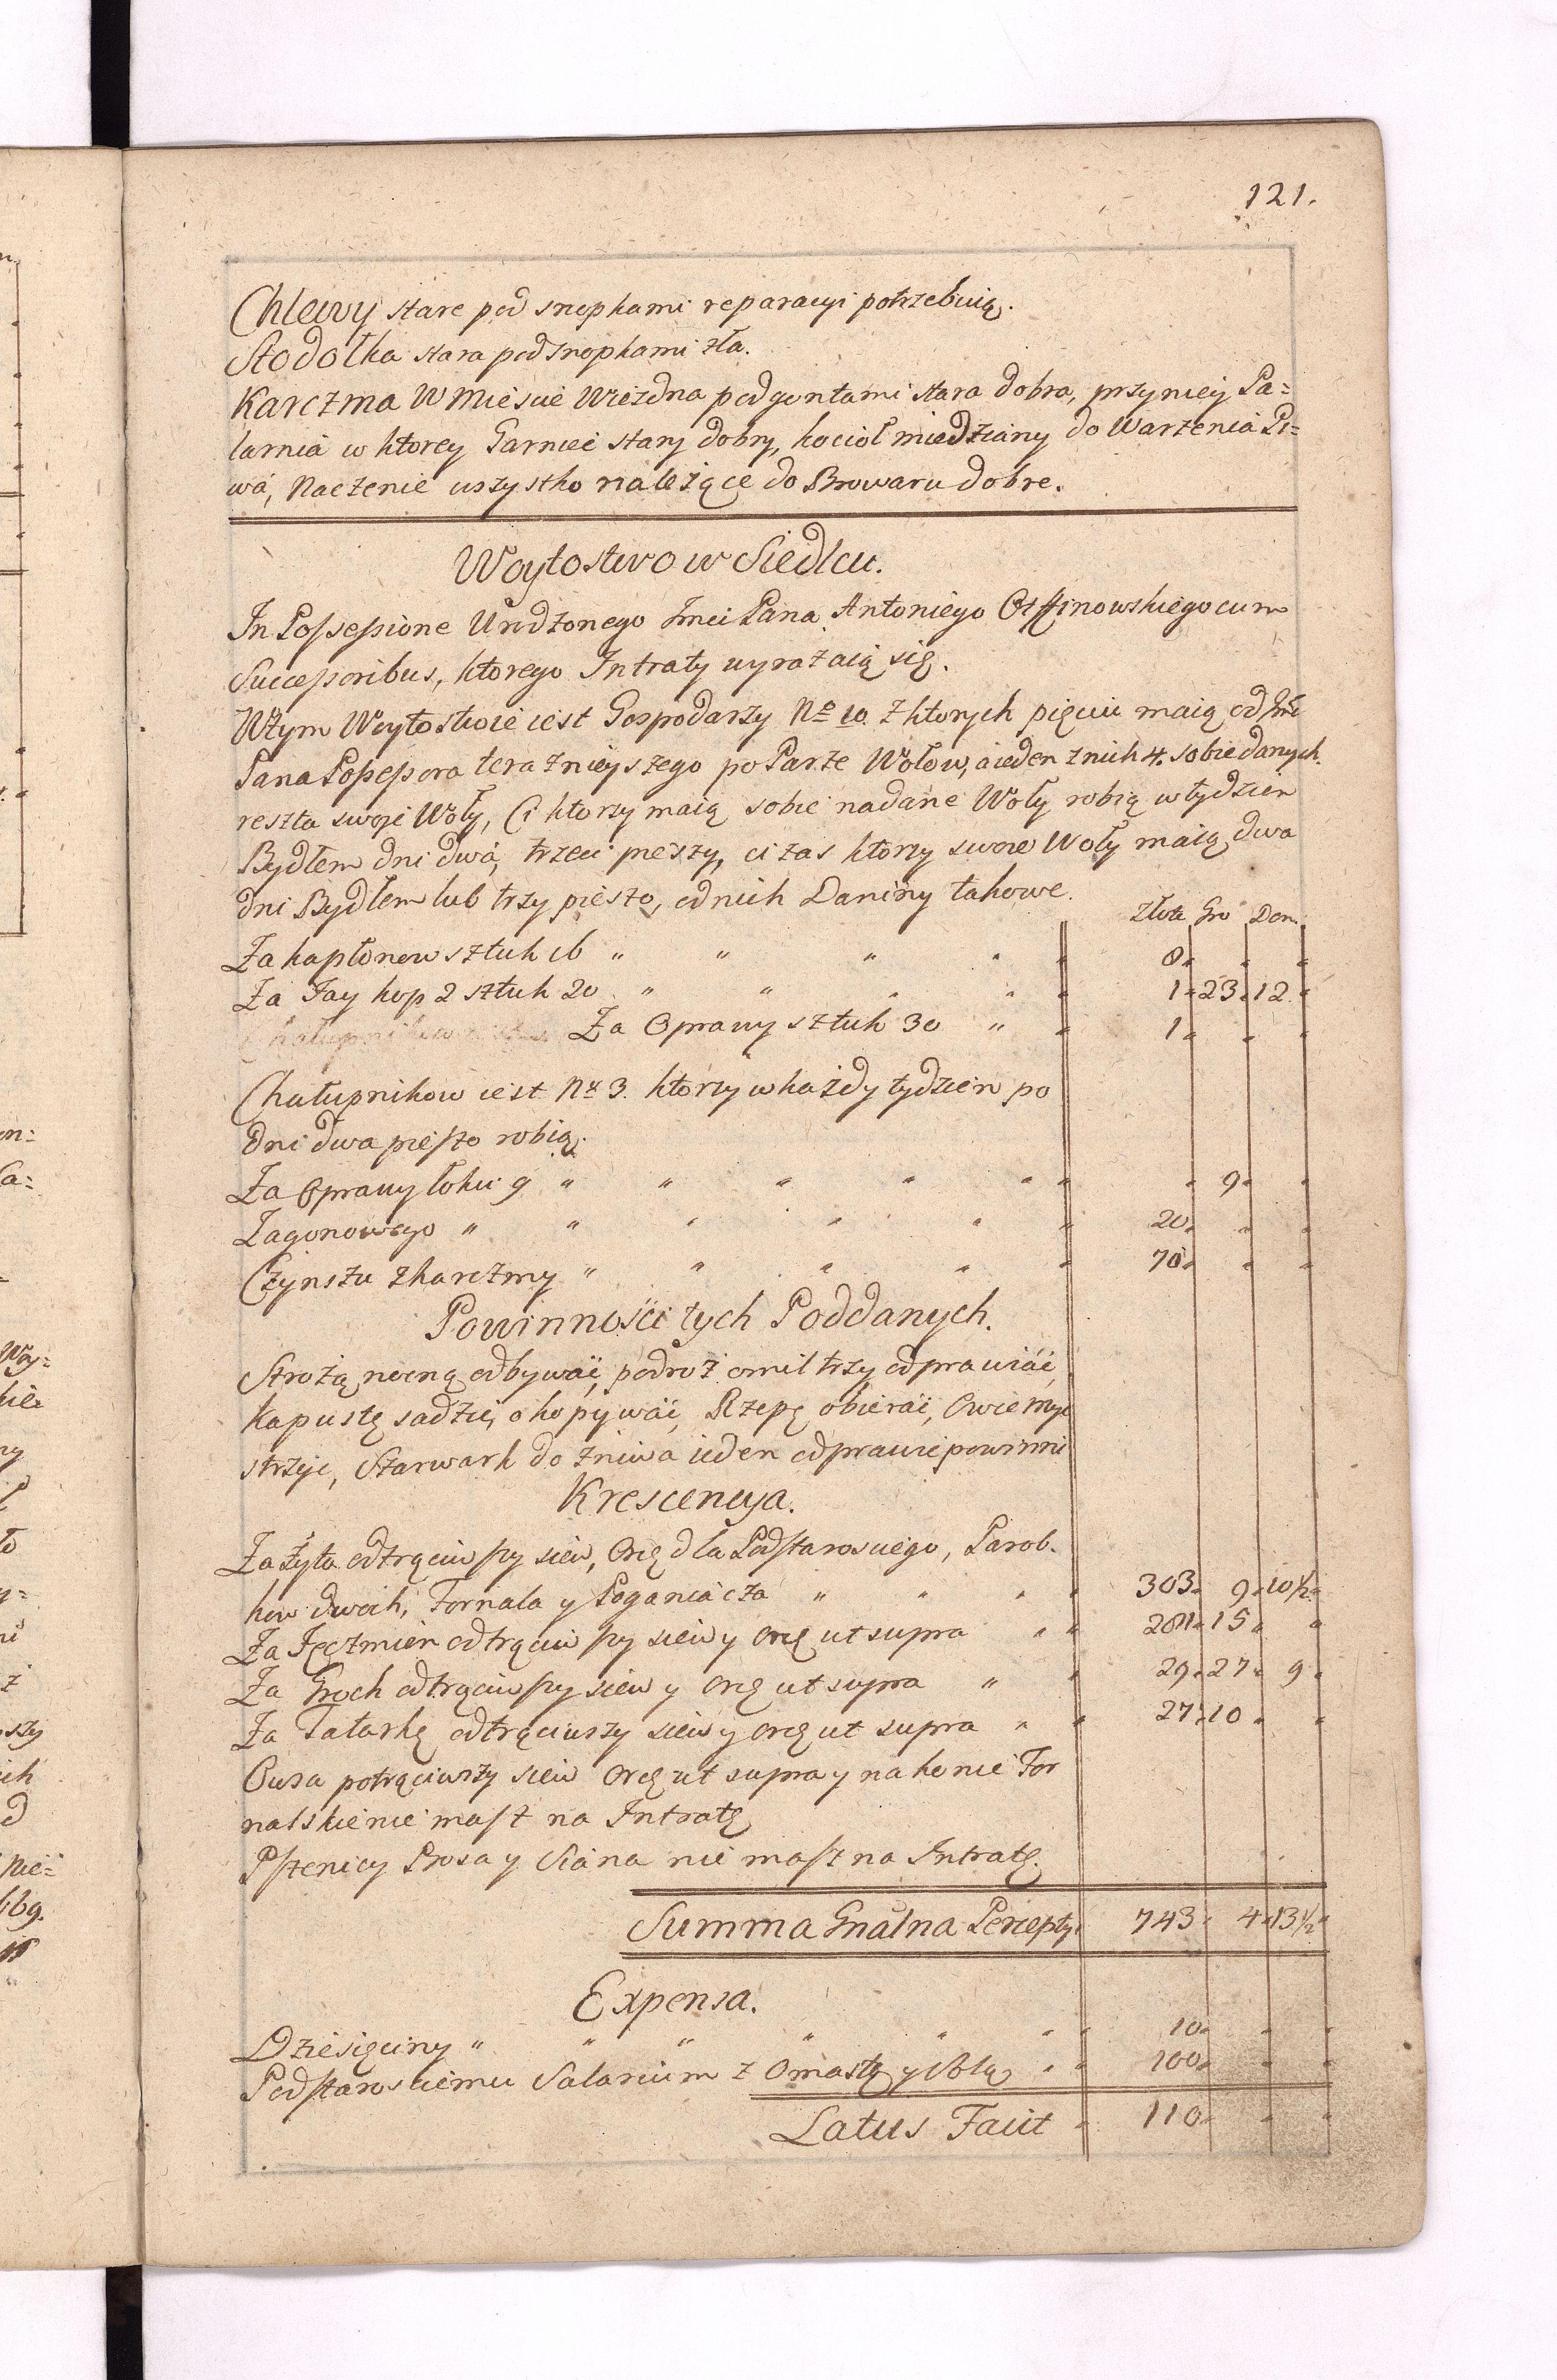 121.
Chlewy stare pod snopkami reparacyi potrzebuią.
Stodołka stara pod snopkami zła.
Karczma W Miescie Wiezdna pod gontami stara dobra, przyniey Pa=
larnia w ktorey Garniec stary dobry, kocioł miedziany do Warzenia Pi=
wa, Naczenie wszystko należące do Browaru dobre.
Woytostwo w Siedlcu.
In Possessione Urodzonego Jmci Pana Antoniego cum
Successoribus, ktorego Intraty wyrażaią się.
Wtym Woytostwie iest Gospodarzy No 10. z ktorych pięciu maią od Jmci
Pana Possessora teraznieyszego po Parze Wołow, a ieden z nich 4. sobie danych
reszta swoje Woły, Ci ktorzy maią sobie nadane Woły robią w tydzien
Bydłem dni dwa, trzeci pieszy, ci zas ktorzy swoie Woły maią dwa
dni Bydłem lub trzy pieszo, od nich Daniny takowe.
Złote Gro Den.
Za kapłonow sztuk 16 " " " " " 8 " " "
Za Jay kop 2 sztuk 20 " " " " " 1 " 23 " 12 "
Za Oprawy sztuk 30 " " 1 " " "
Chałupnikow iest No 3. ktorzy w każdy tydzien po
dni dwa pieszo robią.
Za Oprawy łokci 9 " " " " " " " 9 " "
Zagonowego " " " " " " 20 " " "
Czynszu z karczmy " " " " " 70 " " "
Powinności tych Poddanych.
Strożą nocną odbywać, podroż o mil trzy odprawiać,
Kapustę sadzić, okopywać, Rzepę obierać, Owce myć
strzyc, Szarwark do żniwa ieden odprawić powinni
Krescencya.
Za Żyto odtrąciwszy siew, Orę dla Podstarosciego, Parob.
kow dwoch, Fornala y Poganiacza " " " " 303 " 9 " 10½ "
Za Jęczmien odtrąciwszy siew y Orę ut supra " " 281 " 15 " "
Za Groch odtrąciwszy siew y Orę ut supra " " 29 " 27 " 9 "
Za Tatarkę odtrąciwszy siew y orę ut supra " " 27 " 10 " "
Owsa potrąciwszy siew Orę ut supra y na konie For
nalskie nie masz na Intratę
Pszenicy Prosa y Siana nie masz na Intratę.
Summa Gnalna Percepty 743 " 4 " 13½ "
Expensa.
Dziesięciny " " " " " " " 10 " " "
Podstarosciemu Salarium z Omastą y Solą " " 100 " " "
Latus Facit " 110 " " "